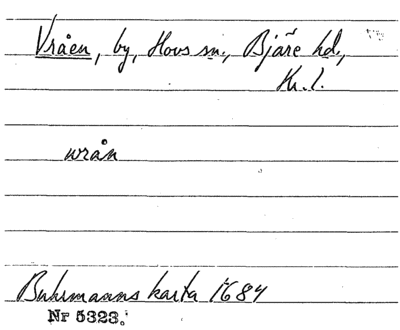 Vråen, by, Hovs sn., Bjäre hd.,
Kr. l.
wrån
Buhrmanns karta 1684
Nr 5323.